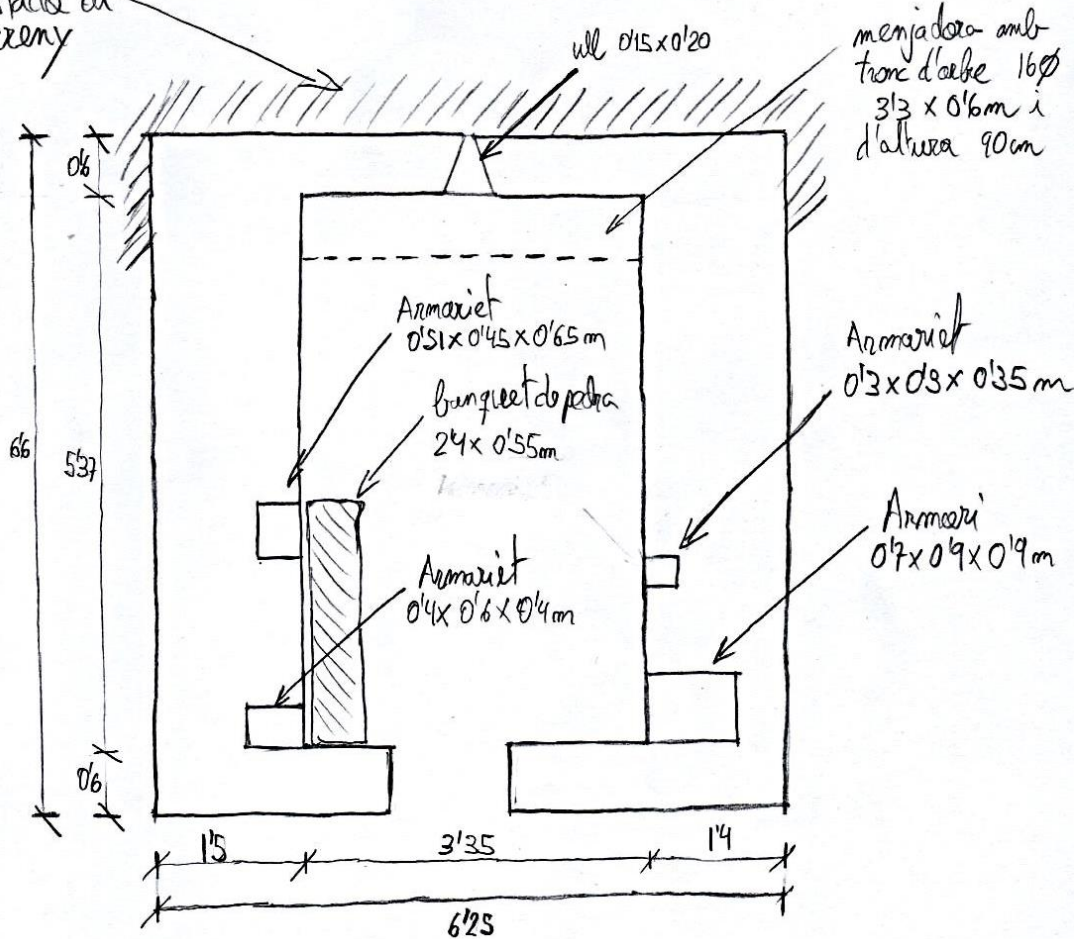 reny
ull 0'15x0'20
menjadora amb
tronc d'arbre 16Ø
3'3 x 0'6m i
d'altura 90cm
Armariet
0'51x0'45x0'65m
banquet de pedra
2'4 x 0'55m
Armariet
0'4x 0'6 x 0'4m
Armariet
0'3x0'3x 0'35m
Armari
0'7x0'9x0'9m
0'6
6'6
5'37
0'6
1'5
3'35
1'4
6'25